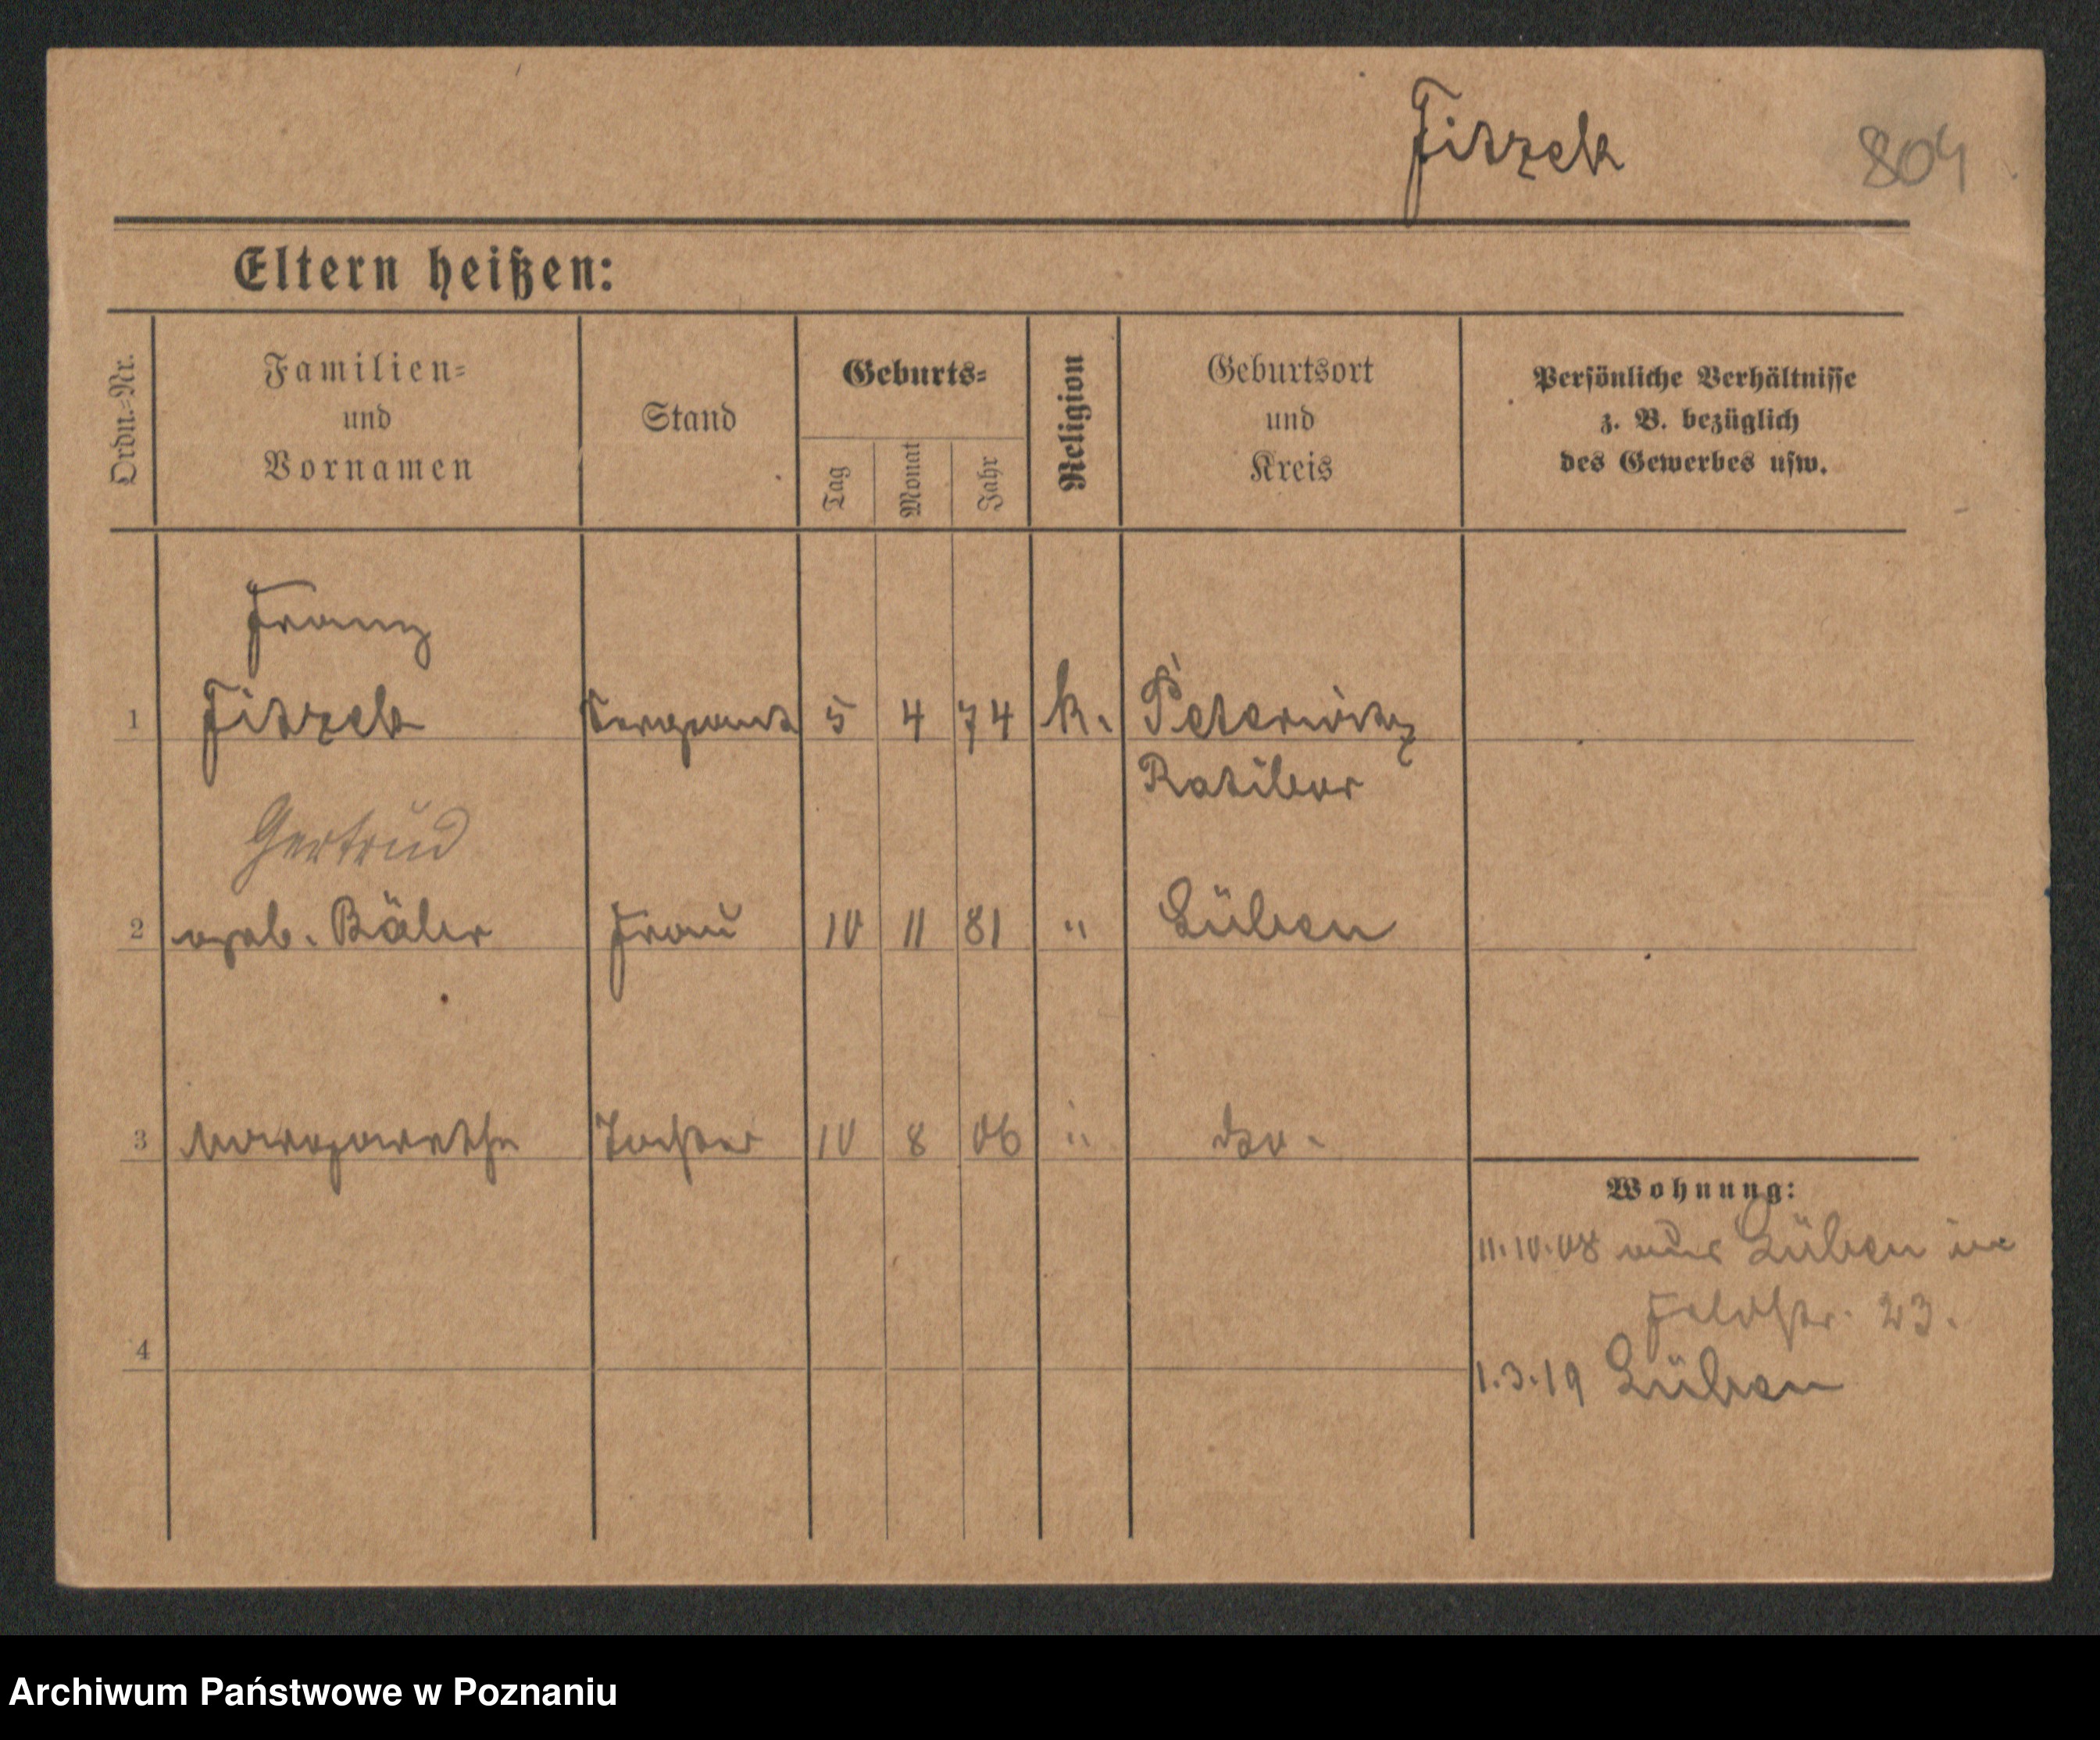 Fitzek 804
Eltern heißen:
Ordn.=Nr.
Familien=
und
Vornamen
Stand
Geburts=
Tag
Monat
Jahr
Religion
Geburtsort
und
Kreis
Persönliche Verhältnisse
z. B. bezüglich
des Gewerbes usw.
Franz
1 Fitzek Sergeant 5 4 74 k. Peterwitz
Ratibor
Gertrud
2 geb. Frau 10 11 81 " Lüben
3 Margarethe Tochter 10 8 06 " dto.
Wohnung:
11.10.08 aus Lüben in
Feldstr. 23.
4
1.3.19 Lüben
Archiwum Państwowe w Poznaniu